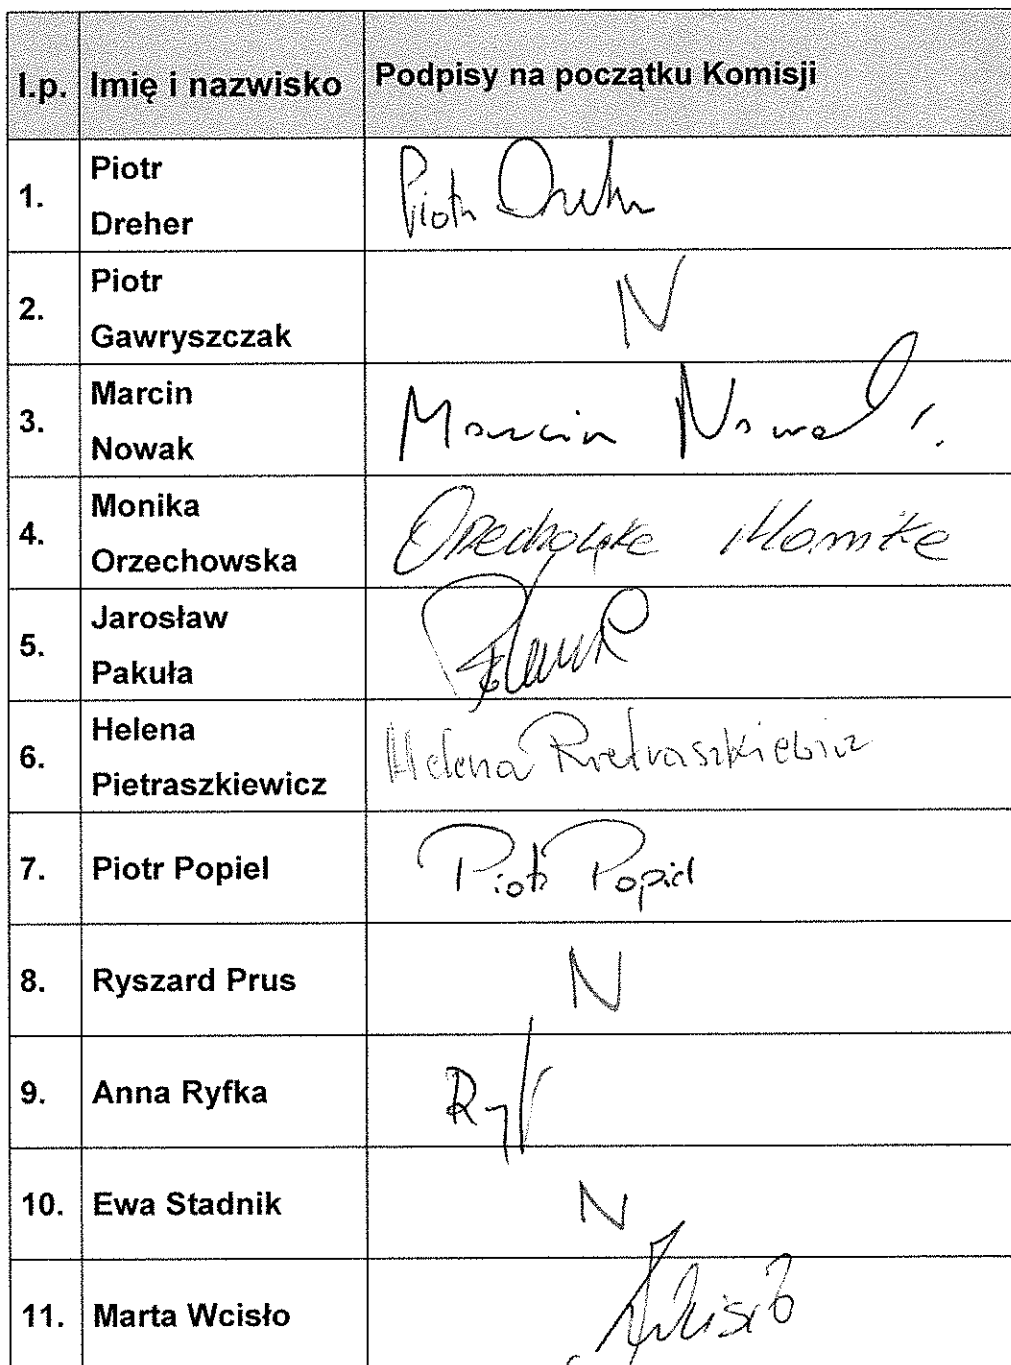 l.p. Imię i nazwisko Podpisy na początku Komisji
1. Piotr Dreher Piotr Dreher
2. Piotr Gawryszczak N
3. Marcin Nowak Marcin Nowak
4. Monika Orzechowska Orzechowska Monika
5. Jarosław Pakuła
6. Helena Pietraszkiewicz Helena Pietraszkiewicz
7. Piotr Popiel Piotr Popiel
8. Ryszard Prus N
9. Anna Ryfka Ryf
10. Ewa Stadnik N
11. Marta Wcisło Wcisło